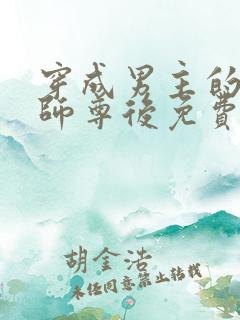 穿成男主的
師尊後免費
胡金浩
未任同意禁止转载